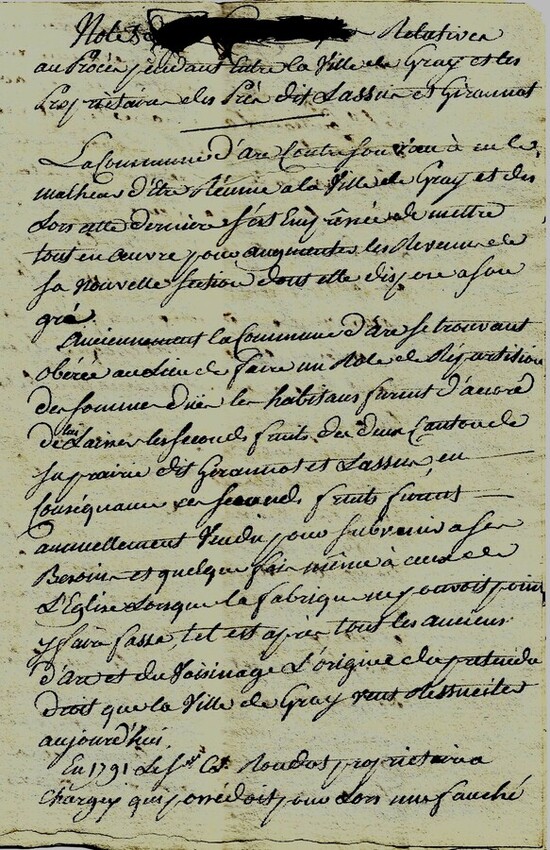 Notes Relatives
au Procès pendant Entre la Ville de Gray et les
Propriétaires des Prés dit Lassus et Girannot
La Commune d'Arc Contre son vœu à eu le
malheur d'Etre Réunie a la Ville de Gray et dès
Lors cette derniere s'est Empressée de mettre
tout en œuvre pour augmenter les Revenus de
sa Nouvelle section dont elle dispose a son
gré.
Anciennement la Commune d'Arc se trouvant
obérée au Lieu de faire un Role de Répartition
des sommes düës les habitans furent d'accord
de lui Laisser les seconds fruits des deux Cantons de
sa prairie dit Girannot et Lassus, en
Conséquence ces seconds fruits furent
annuellement Vendu pour subvenir a ses
Besoins et quelque fois même à ceux de
L'Eglise Lorsque la fabrique ne pouvoit point
y faire fasse, tel est après tous les anciens
d'Arc et du Voisinage L'origine du pretendu
droit que la Ville de Gray veut Ressusciter
aujourd'hui.
En 1791 Le Sr Roudot propriétaire a
Chargey qui possedoit pour Lors une fauché